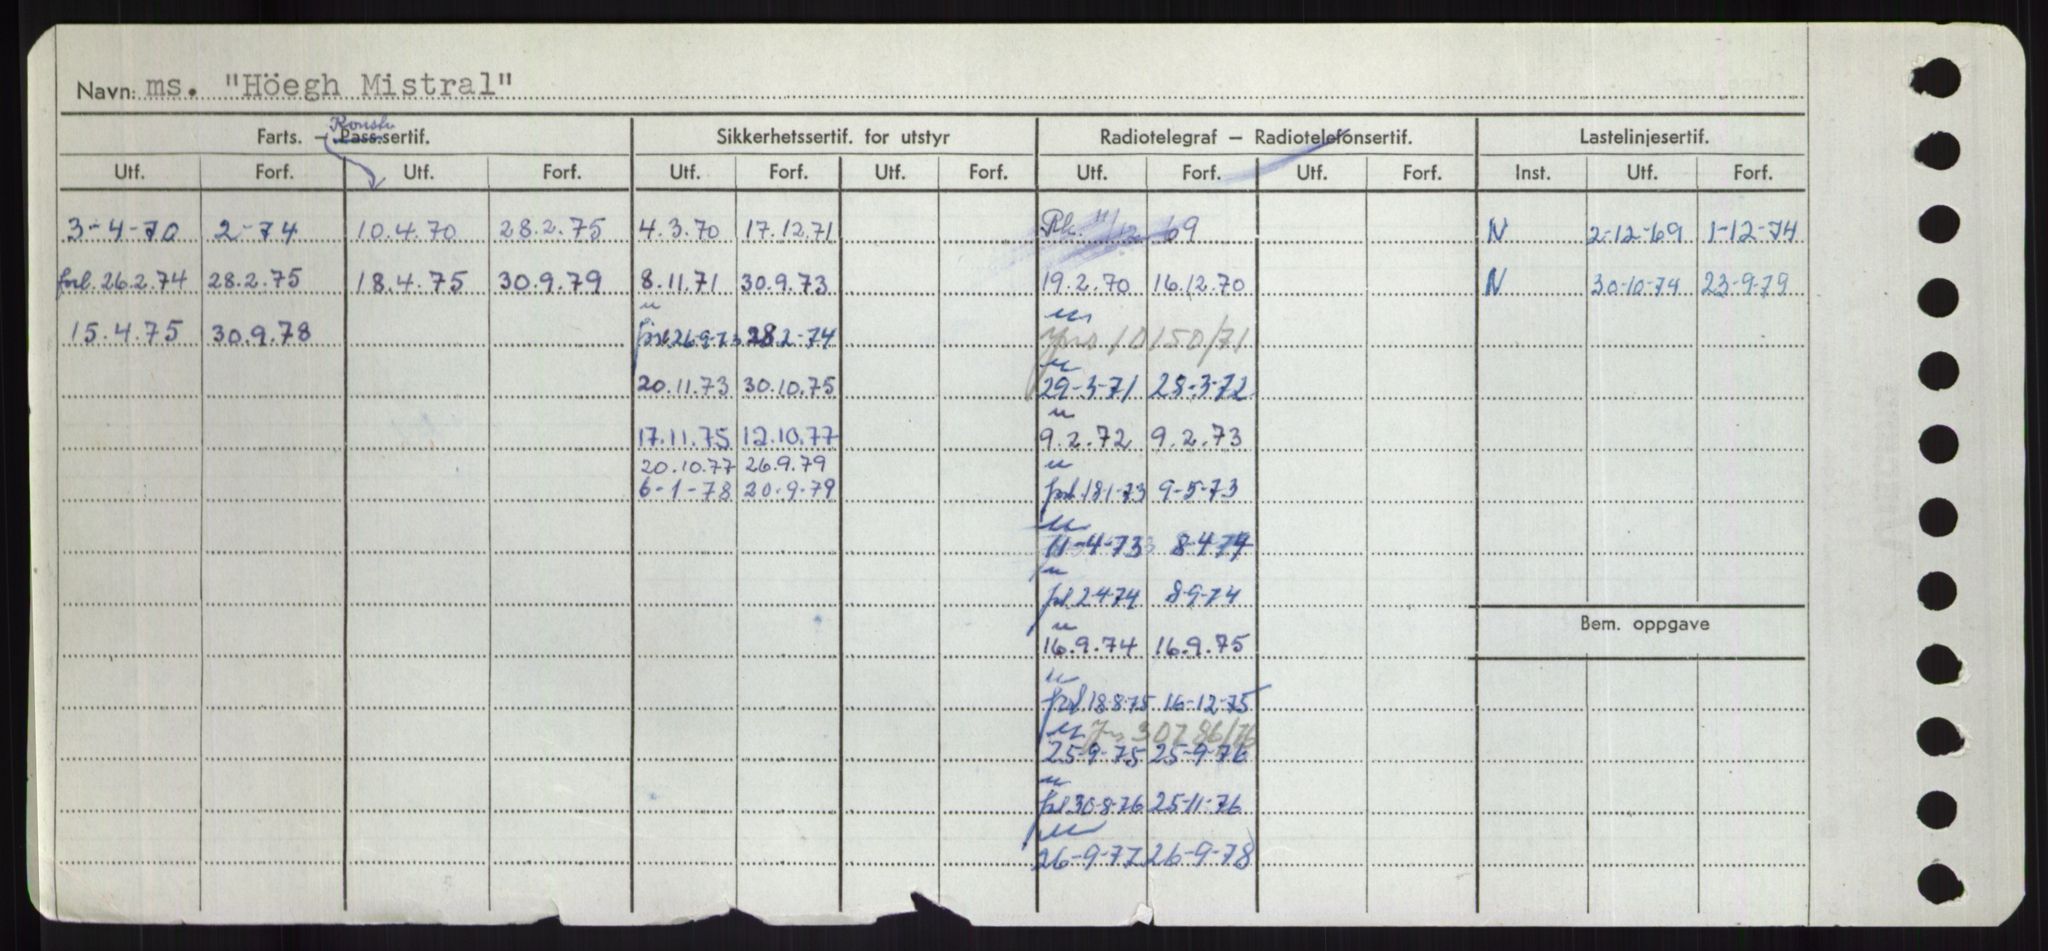 Navn: ms. "Höegh Mistral"
Konstr.
Farts. – Pass.sertif. Sikkerhetssertif. for utstyr Radiotelegraf – Radiotelefonsertif. Lastelinjesertif.
Utf. Forf. Utf. Forf. Utf. Forf. Utf. Forf. Utf. Forf. Utf. Forf. Inst. Utf. Forf.
3-4-70 2-74 10.4.70 28.2.75 4.3.70 17.12.71 Rk. 11/12 69 N 2-12-69 1-12-74
forl. 26.2.74 28.2.75 18.4.75 30.9.79 8.11.71 30.9.73 19.2.70 16.12.70 N 30-10-74 23-9-79
15.4.75 30.9.78 forl 26-9-73 28.2-74 10150/71
20.11.73 30.10.75 29-3-71 28-3-72
17.11.75 12.10.77 9.2.72 9.2.73
20.10.77 26.9.79
6-1-78 20-9-79 forl. 18.1-73 9-5-73
11-4-73 8-4-74
forl. 2-4-74 8-9-74
Bem. oppgave
16.9.74 16.9.75
forl. 18-8-75 16-12-75
Jnr 30286/76
25-9-75 25-9-76
forl 30-8-76 25-11-76
26-9-77 26-9-78